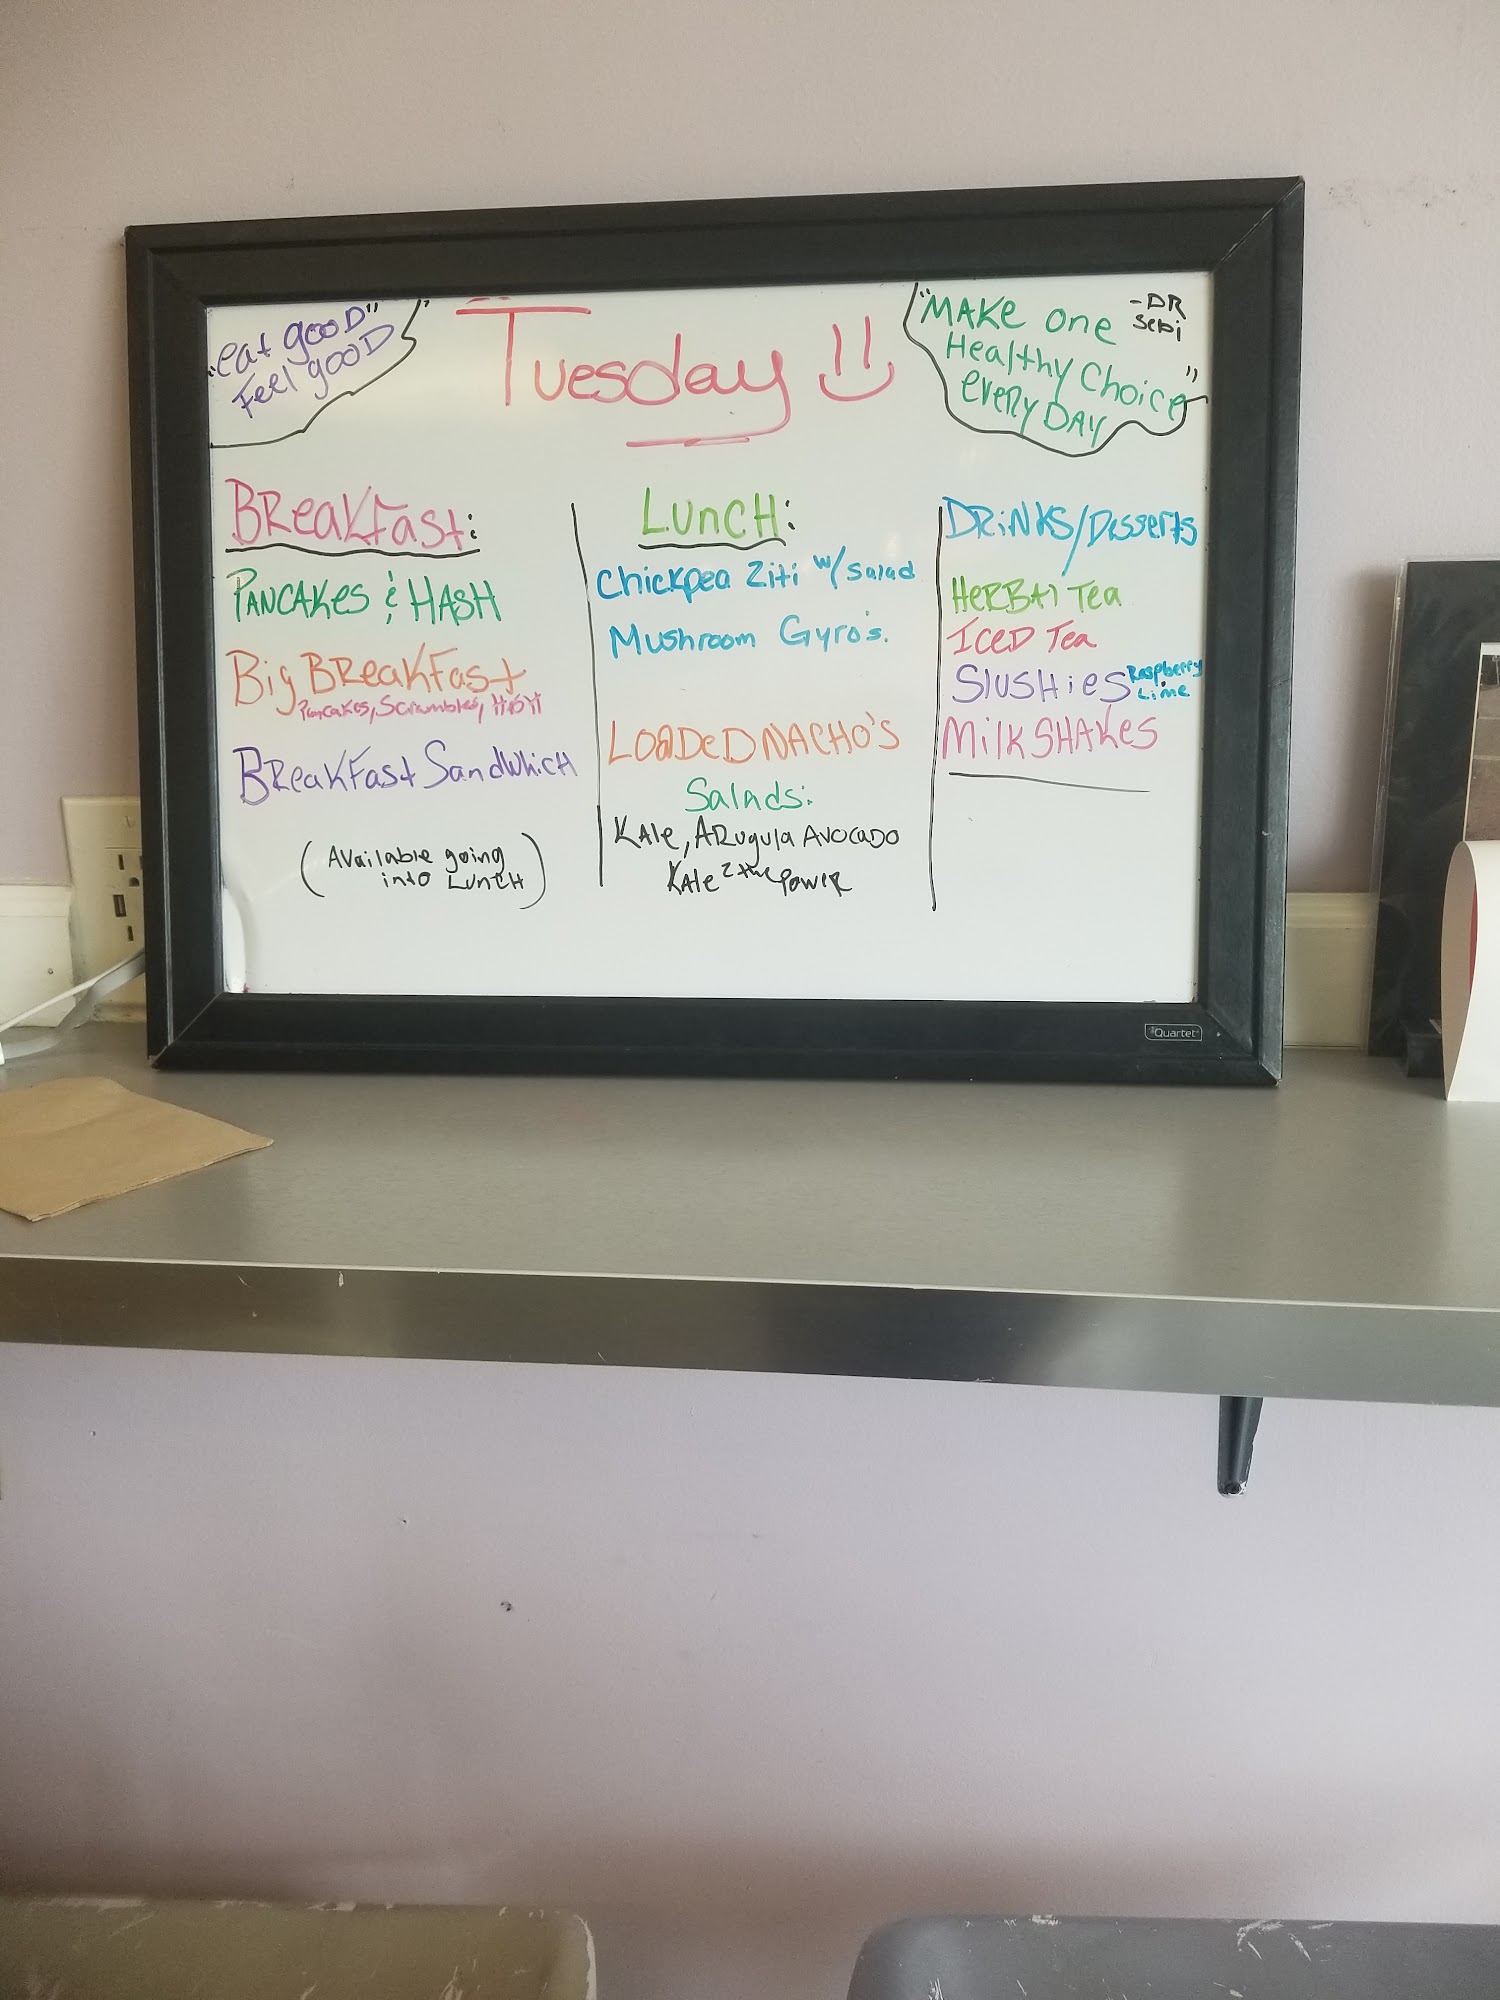 "eat gooD"
Feel gooD
Tuesday
"MAKe one
Healthy Choice"
every DAY
-DR
Sebi
BReakFast:
PANCAKes & HASH
Big BReakFast
Pancakes, Scrambles, HASH
BReakFast SandWhicH
(Available going
into LuncH)
LuncH:
Chickpea Ziti w/ Salad
Mushroom Gyro's.
LOADeD NACHO'S
Salads:
KAle, ARugula AVOCADO
KAle 2 the power
DRiNKS/Desserts
HeRBAl Tea
ICeD Tea
SlusHies Raspberry
Lime
MilkSHAKes
Quartet